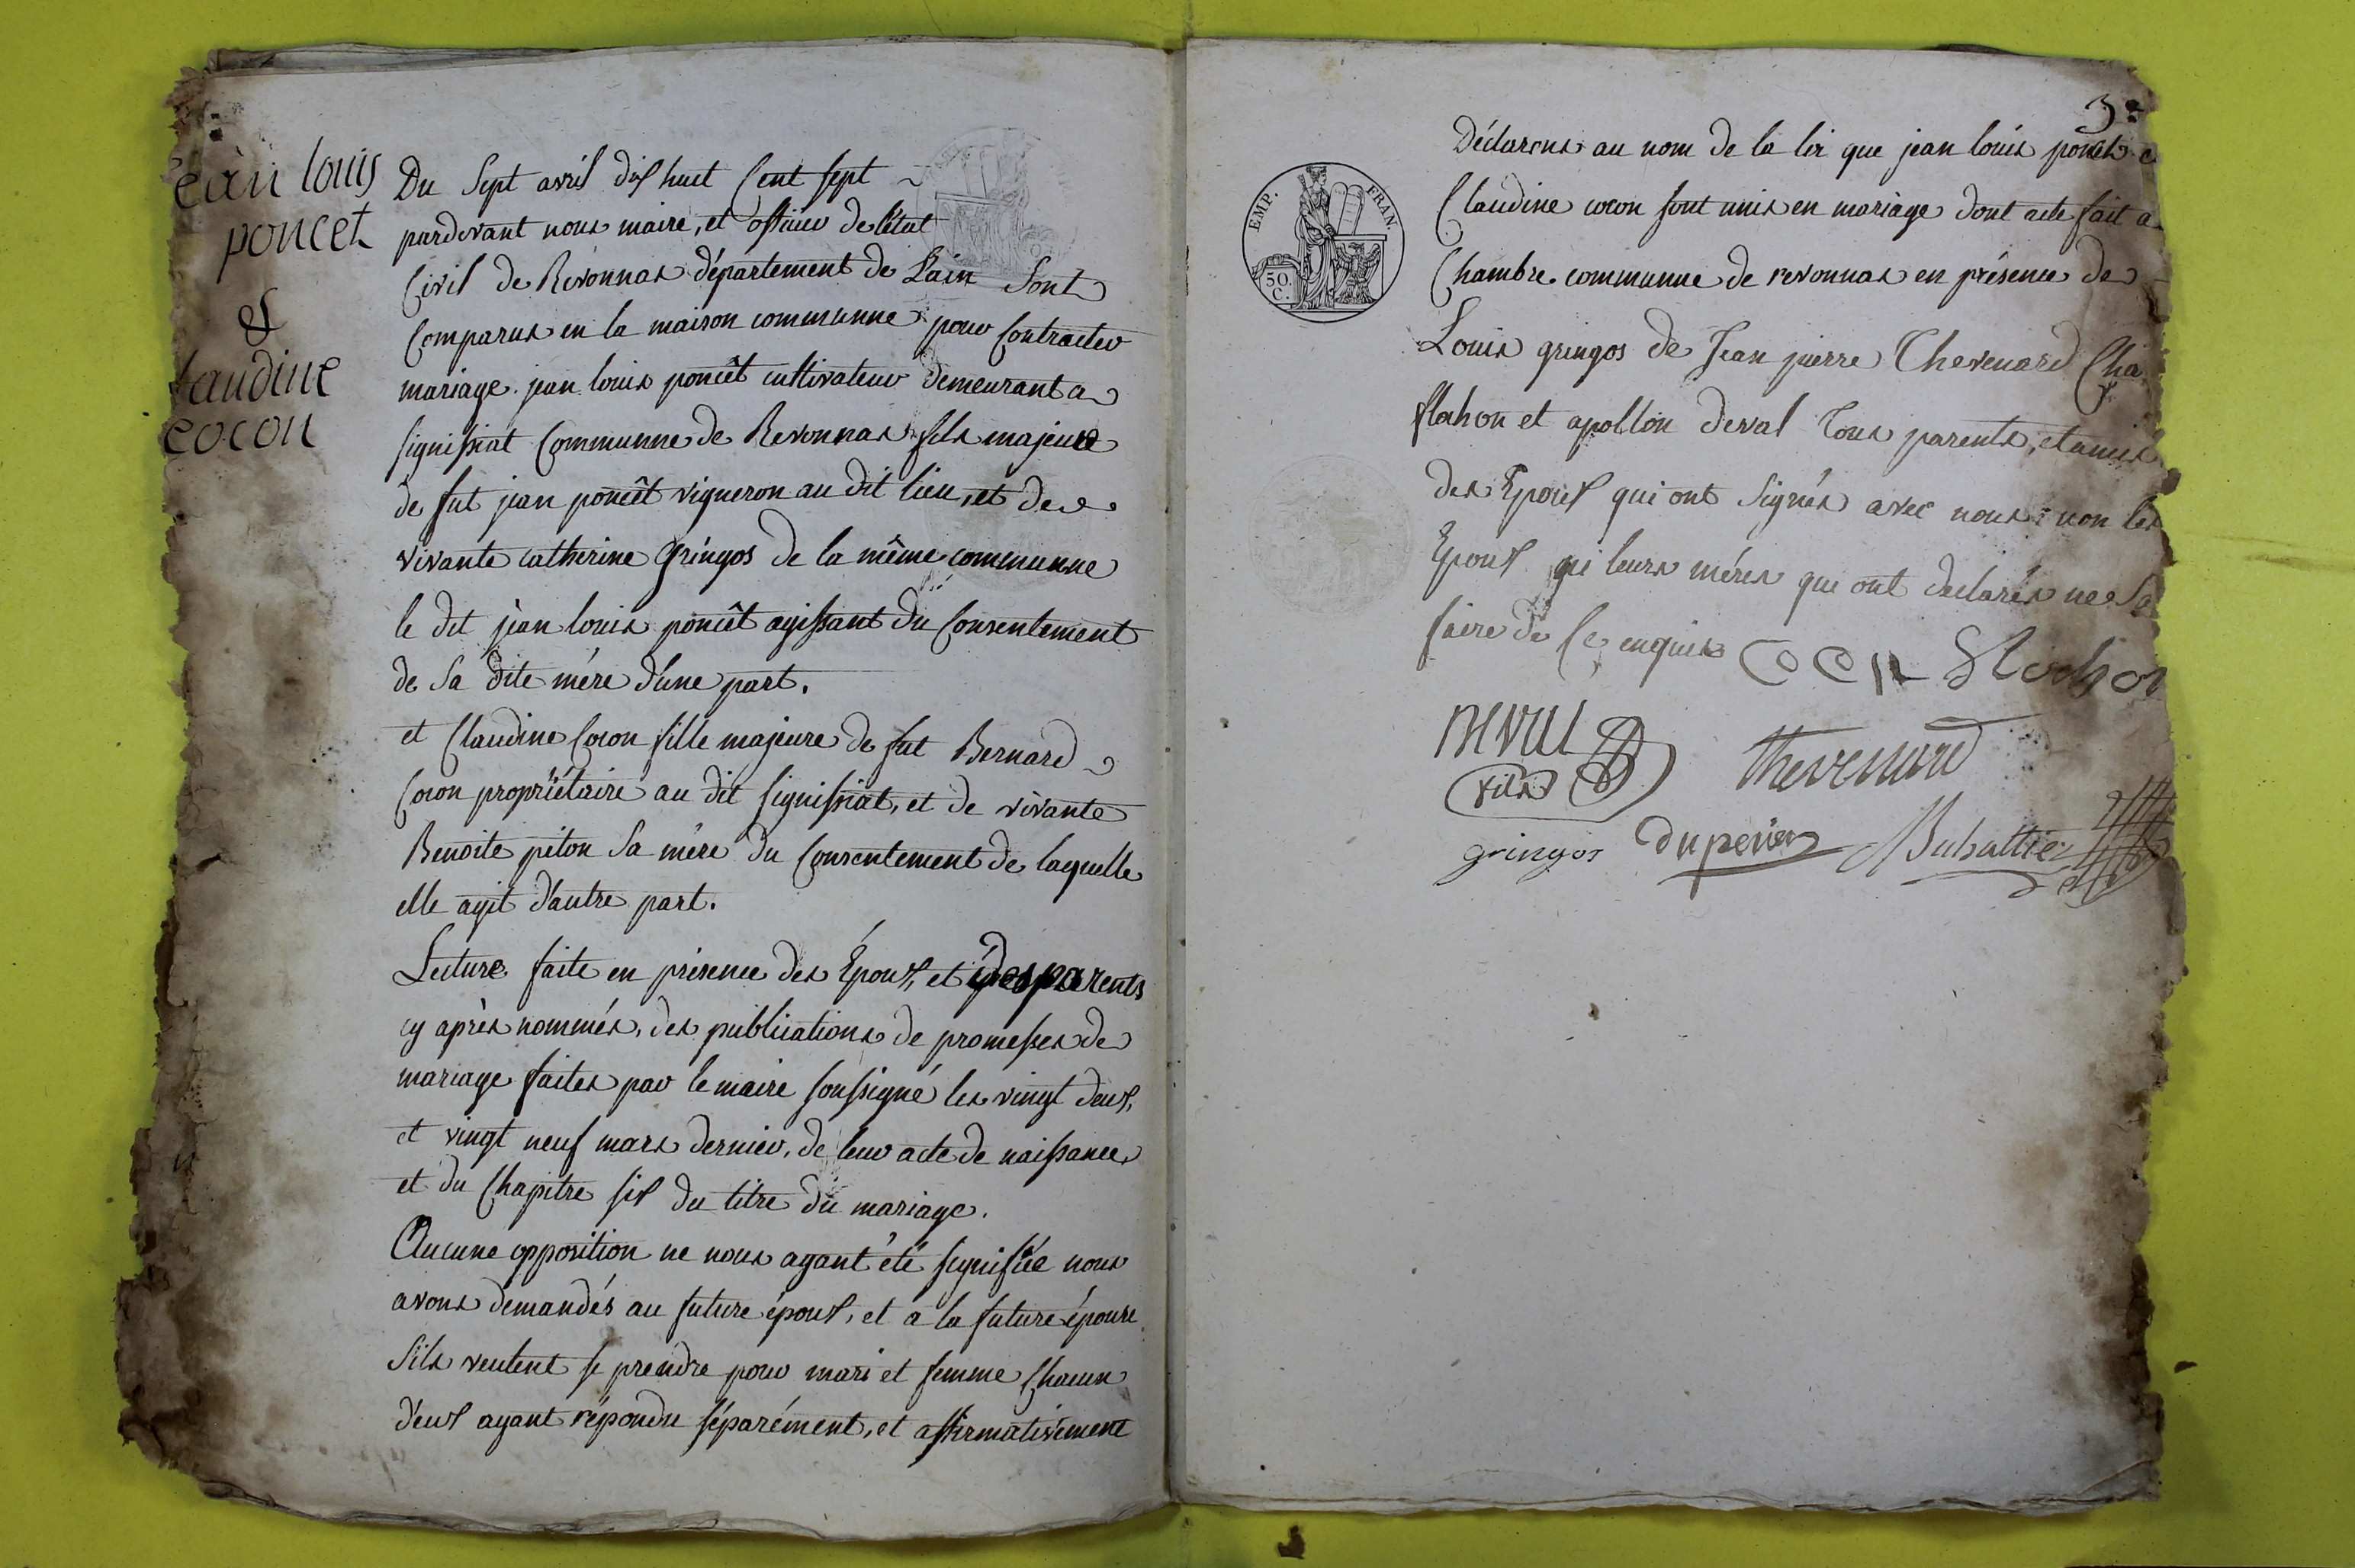 ean louis
poncet
&
laudine
cocon
Du Sept avril dix huit Cent sept
pardevant nous maire, et officier de létat
Civil de Revonnas département de Lain Sont
Comparus en la maison communne pour Contracter
mariage. jean louis poncêt cultivateur demeurant a
signissiat Communne de Revonnas fils majeur
de fut jean poncêt vigneron au dit lieu, et de
vivante catherine gringos de la même communne
le dit jean louis poncêt agissant du Consentement
de Sa dite mére d'une part.
et Claudine Cocon fille majeure de fut Bernard
Cocon propriétaire au dit signissiat, et de vivante
Benoite piton Sa mére du Consentement de laquelle
elle agit d'autre part.
Lecture faite en présence des Epoux, et des parents
cy après nommés, des publications de promesses de
mariage faites par le maire soussigné les vingt deux,
et vingt neuf mars dernier, de leur acte de naissance
et du Chapitre six du titre du mariage.
Aucune opposition ne nous ayant été signifiée nous
avons demandés au future époux, et a la future épouse
S'ils veulent se prendre pour mari et femme Chacun
d'eux ayant répondu séparément, et affirmativement
3e
Déclarons au nom de la loi que jean louis poncet e
Claudine cocon sont unis en mariage dont acte fait a
Chambre communne de revonnas en présence de
EMP. FRAN.
50.
C.
Louis gringos de Jean pierre Thevenard Cha
flahon et apollon deval Tous parents, et amis
des Epoux qui ont Signés avec nous non les
Epoux ni leurs méres qui ont declarés ne Sa
faire de Ce enquis cocn
Thevenard
gringos duperier